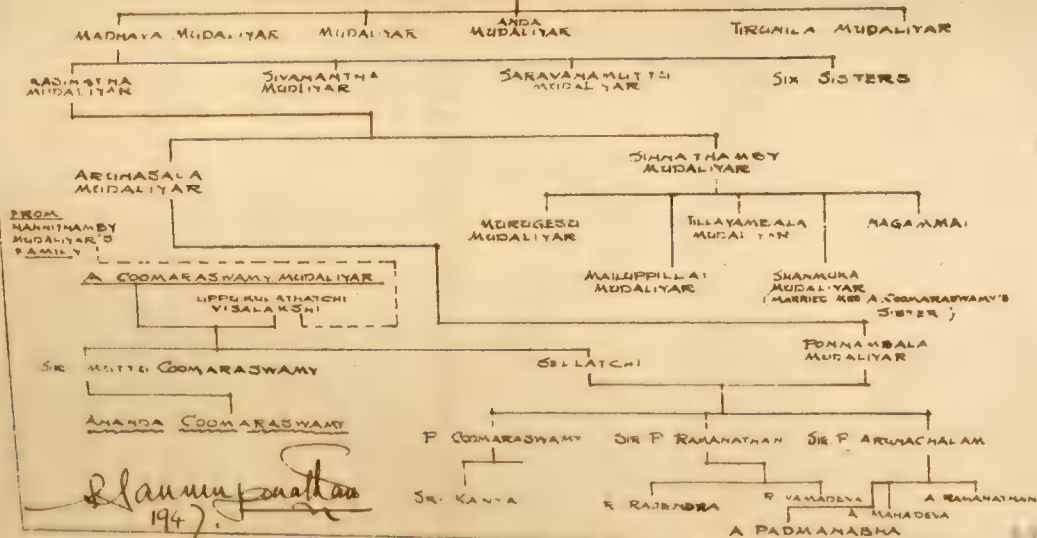 MADHAVA MUDALIYAR
MUDALIYAR
ANDA
MUDALIYAR
TIRUNILA MUDALIYAR
MUDALIYAR
SIVAMANTHA
MUDLIYAR
SARAVANAMUTTU
MUDALIYAR
SIX SISTERS
ARUNASALA
MUDALIYAR
SINNATHAMBY
MUDALIYAR
MURUGESU
MUDALIYAR
TILLAYAMBALA
MUDALIYAR
NAGAMMAI
MAILUPPILLAI
MUDALIYAR
SHANMUKA
MUDALIYAR
(MARRIED A. COOMARASWAMY'S
SISTER)
FROM
NANNITHAMBY
MUDALIYAR'S
FAMILY
A COOMARASWAMY MUDALIYAR
UPPUKULATHATCHI
VISALAKSHI
PONNAMBALA
MUDALIYAR
SIR MUTTU COOMARASWAMY
SELLATCHI
ANANDA COOMARASWAMY
P COOMARASWAMY
SIR P RAMANATHAN
SIR. P ARUNACHALAM
SRI KANYA
R RAJENDRA
R VAMADEVA
A MAHADEVA
A RAMANATHAN
A PADMANABHA
1947.